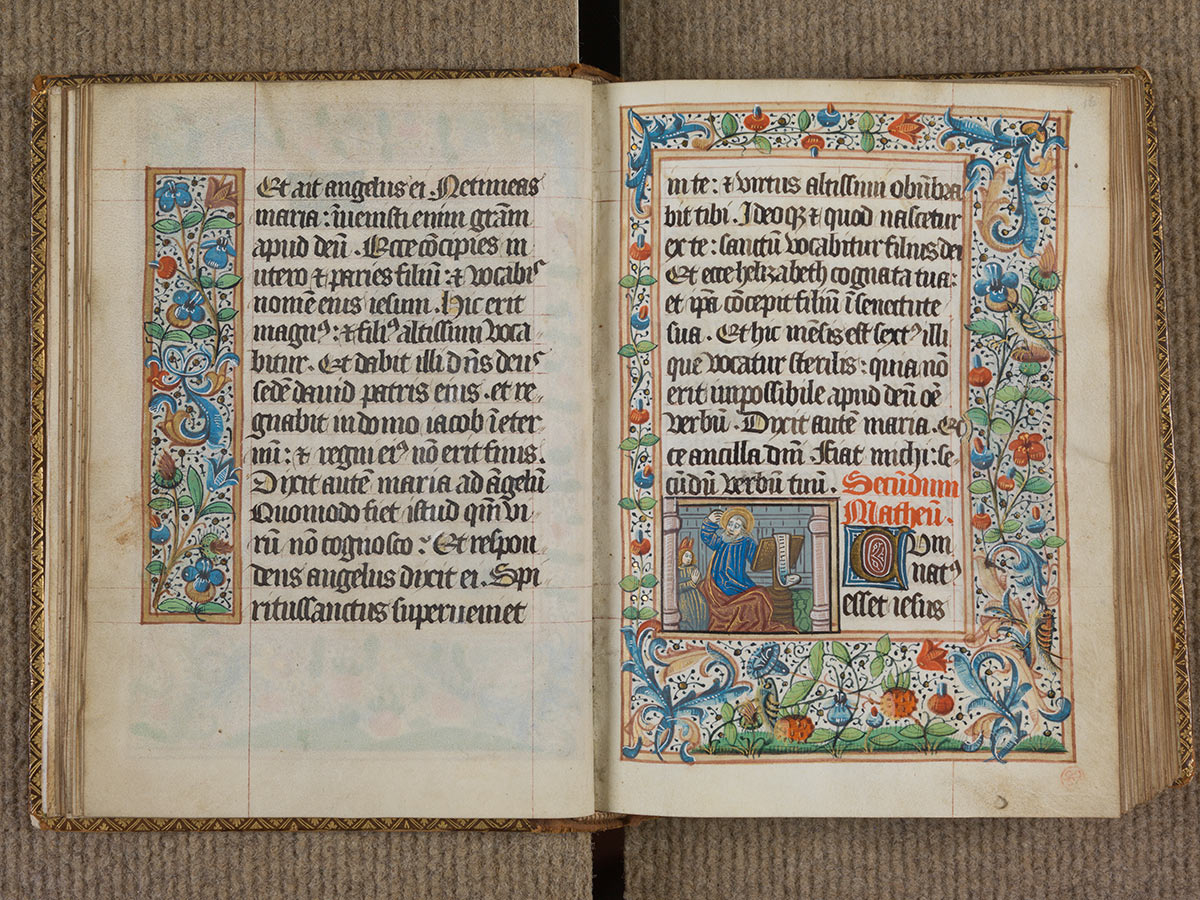 Et ait angelus ei. Ne timeas
maria: īvenisti enim grām
apud deū. Ecce cōcipies in
utero ⁊ paries filiū: ⁊ vocabisꝰ
nomē eius iesum. Hic erit
magnꝰ: ⁊ filiꝰ altissimi voca
bitur. Et dabit illi dn̄s deus
sedē david patris eius. et re
gnabit in domo iacob ī eter
nū: ⁊ regni eiꝰ nō erit finis.
Dixit autē maria ad āgelū
Quomodo fiet istud qm̄ vi
rū nō cognosco? Et respon
dens angelus dixit ei. Spi
ritussanctus superveniet
16
in te: ⁊ virtus altissimi obūbra
bit tibi. Ideoqꝫ ⁊ quod nascetur
ex te: sanctū vocabitur filius dei
Et ecce helizabeth cognata tua:
et ip̄a cōcepit filiū ī senectute
sua. Et hic mēsis est sextꝰ illi
que vocatur sterilis: quia nō
erit impossibile apud deū oē
verbū. Dixit autē maria. Ec
ce ancilla dn̄i. Fiat michi: se
cūdū verbū tuū. Secūdum
Matheū.
Cum
natꝰ
esset iesus